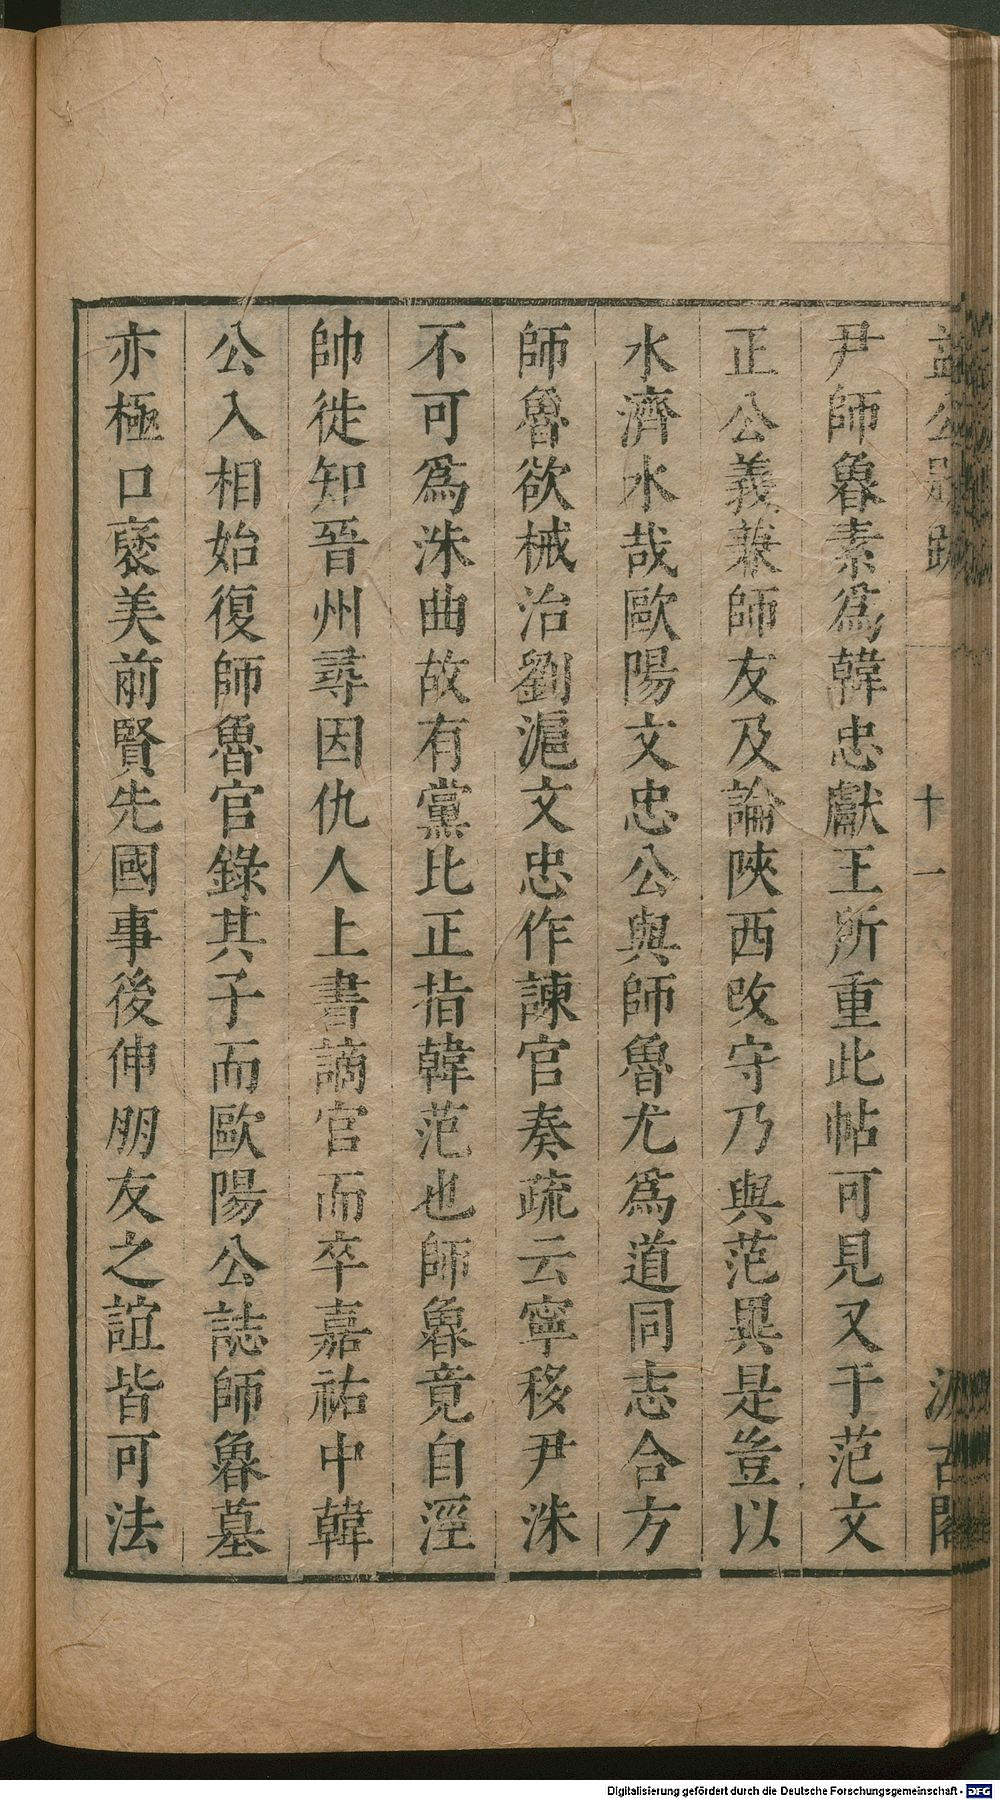 益公題跋 十一 汲古閣
尹師魯素爲韓忠獻王所重此帖可見又于范文
正公義兼師友及論陝西攻守乃與范異是豈以
水濟水哉歐陽文忠公與師魯尤爲道同志合方
師魯欲械治劉滬文忠作諫官奏疏云寧移尹洙
不可爲洙曲故有黨比正指韓范也師魯竟自涇
帥徙知晉州尋因仇人上書謫官而卒嘉祐中韓
公入相始復師魯官錄其子而歐陽公誌師魯墓
亦極口褒美前賢先國事後伸朋友之誼皆可法
Digitalisierung gefördert durch die Deutsche Forschungsgemeinschaft - DFG